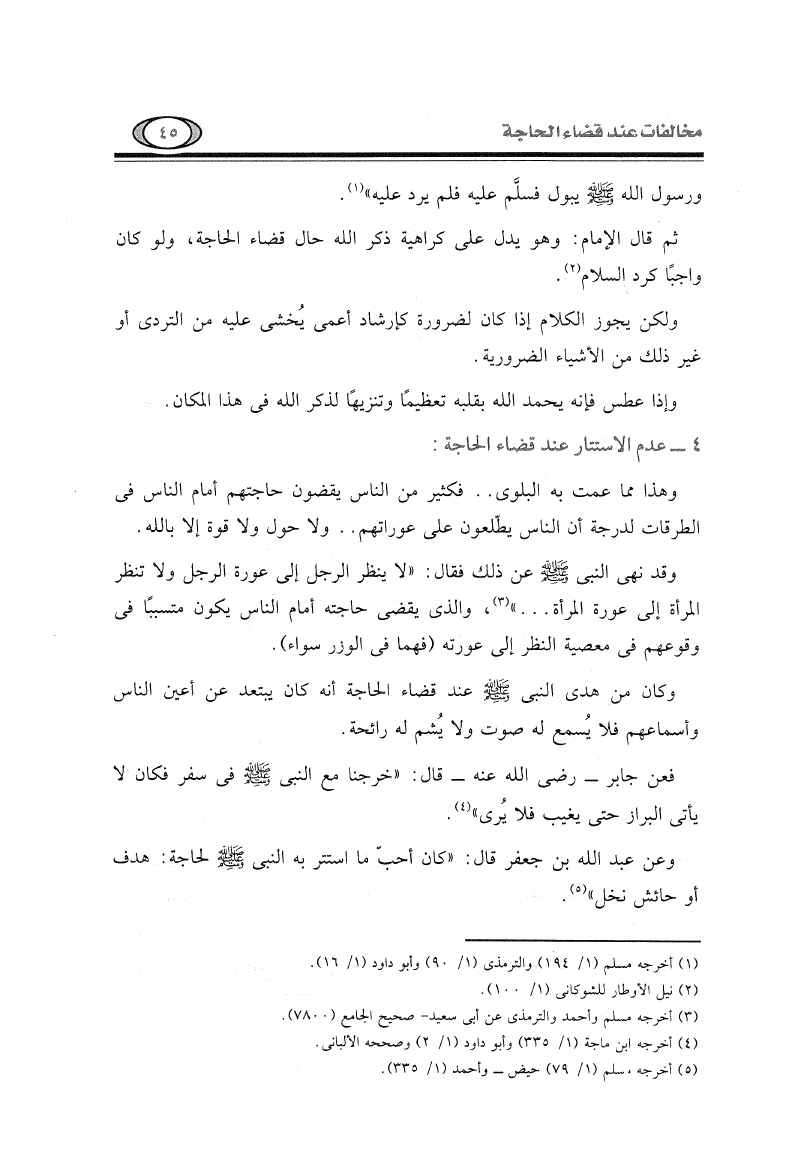 مخالفات عند قضاء الحاجة ٤٥
ورسول الله ﷺ يبول فسلَّم عليه فلم يرد عليه»(١).
ثم قال الإمام: وهو يدل على كراهية ذكر الله حال قضاء الحاجة، ولو كان
واجبًا كرد السلام(٢).
ولكن يجوز الكلام إذا كان لضرورة كإرشاد أعمى يُخشى عليه من التردى أو
غير ذلك من الأشياء الضرورية.
وإذا عطس فإنه يحمد الله بقلبه تعظيمًا وتنزيهًا لذكر الله فى هذا المكان.
٤ ــ عدم الاستتار عند قضاء الحاجة :
وهذا مما عمت به البلوى.. فكثير من الناس يقضون حاجتهم أمام الناس فى
الطرقات لدرجة أن الناس يطّلعون على عوراتهم.. ولا حول ولا قوة إلا بالله.
وقد نهى النبى ﷺ عن ذلك فقال: «لا ينظر الرجل إلى عورة الرجل ولا تنظر
المرأة إلى عورة المرأة...»(٣)، والذى يقضى حاجته أمام الناس يكون متسببًا فى
وقوعهم فى معصية النظر إلى عورته (فهما فى الوزر سواء).
وكان من هدى النبى ﷺ عند قضاء الحاجة أنه كان يبتعد عن أعين الناس
وأسماعهم فلا يُسمع له صوت ولا يُشم له رائحة.
فعن جابر ــ رضى الله عنه ــ قال: «خرجنا مع النبى ﷺ فى سفر فكان لا
يأتى البراز حتى يغيب فلا يُرى»(٤).
وعن عبد الله بن جعفر قال: «كان أحبّ ما استتر به النبى ﷺ لحاجة: هدف
أو حائش نخل»(٥).
(١) أخرجه مسلم (١/ ١٩٤) والترمذى (١/ ٩٠) وأبو داود (١/ ١٦).
(٢) نيل الأوطار للشوكانى (١/ ١٠٠).
(٣) أخرجه مسلم وأحمد والترمذى عن أبى سعيد- صحيح الجامع (٧٨٠٠).
(٤) أخرجه ابن ماجة (١/ ٣٣٥) وأبو داود (١/ ٢) وصححه الألبانى.
(٥) أخرجه مسلم (١/ ٧٩) حيض ــ وأحمد (١/ ٣٣٥).